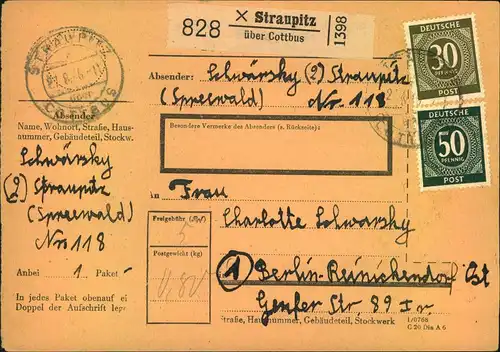 828
× Straupitz
über Cottbus
1398
DEUTSCHE
30
PFENNIG
POST
DEUTSCHE
50
PFENNIG
POST
STRAUPITZ
COTTBUS
Absender
Name, Wohnort, Straße, Haus-
nummer, Gebäudeteil, Stockw.
Schwärsky
(2) Straupitz
(Spreewald)
Nr. 118
Anbei 1 Paket
In jedes Paket obenauf ei
Doppel der Aufschrift leg
Absender: Schwärsky (2) Straupitz
(Spreewald) Nr. 118
Besondere Vermerke des Absenders (s. Rückseite):
An Frau
Charlotte Schwarsky
(1) Berlin-Reinickendorf Ost
Genfer Str. 89 I r.
Freigebühr
5
Postgewicht (kg)
Straße, Hausnummer, Gebäudeteil, Stockwerk
C 20 Din A 6